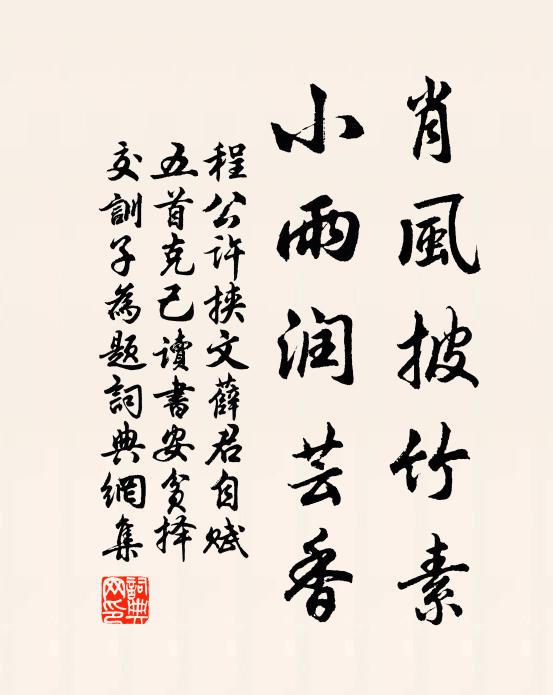 肖風披竹素
小雨润芸香
程公许挟文薛君自赋
五首克己讀書安贫择
交訓子為题詞典網集
詞典网印